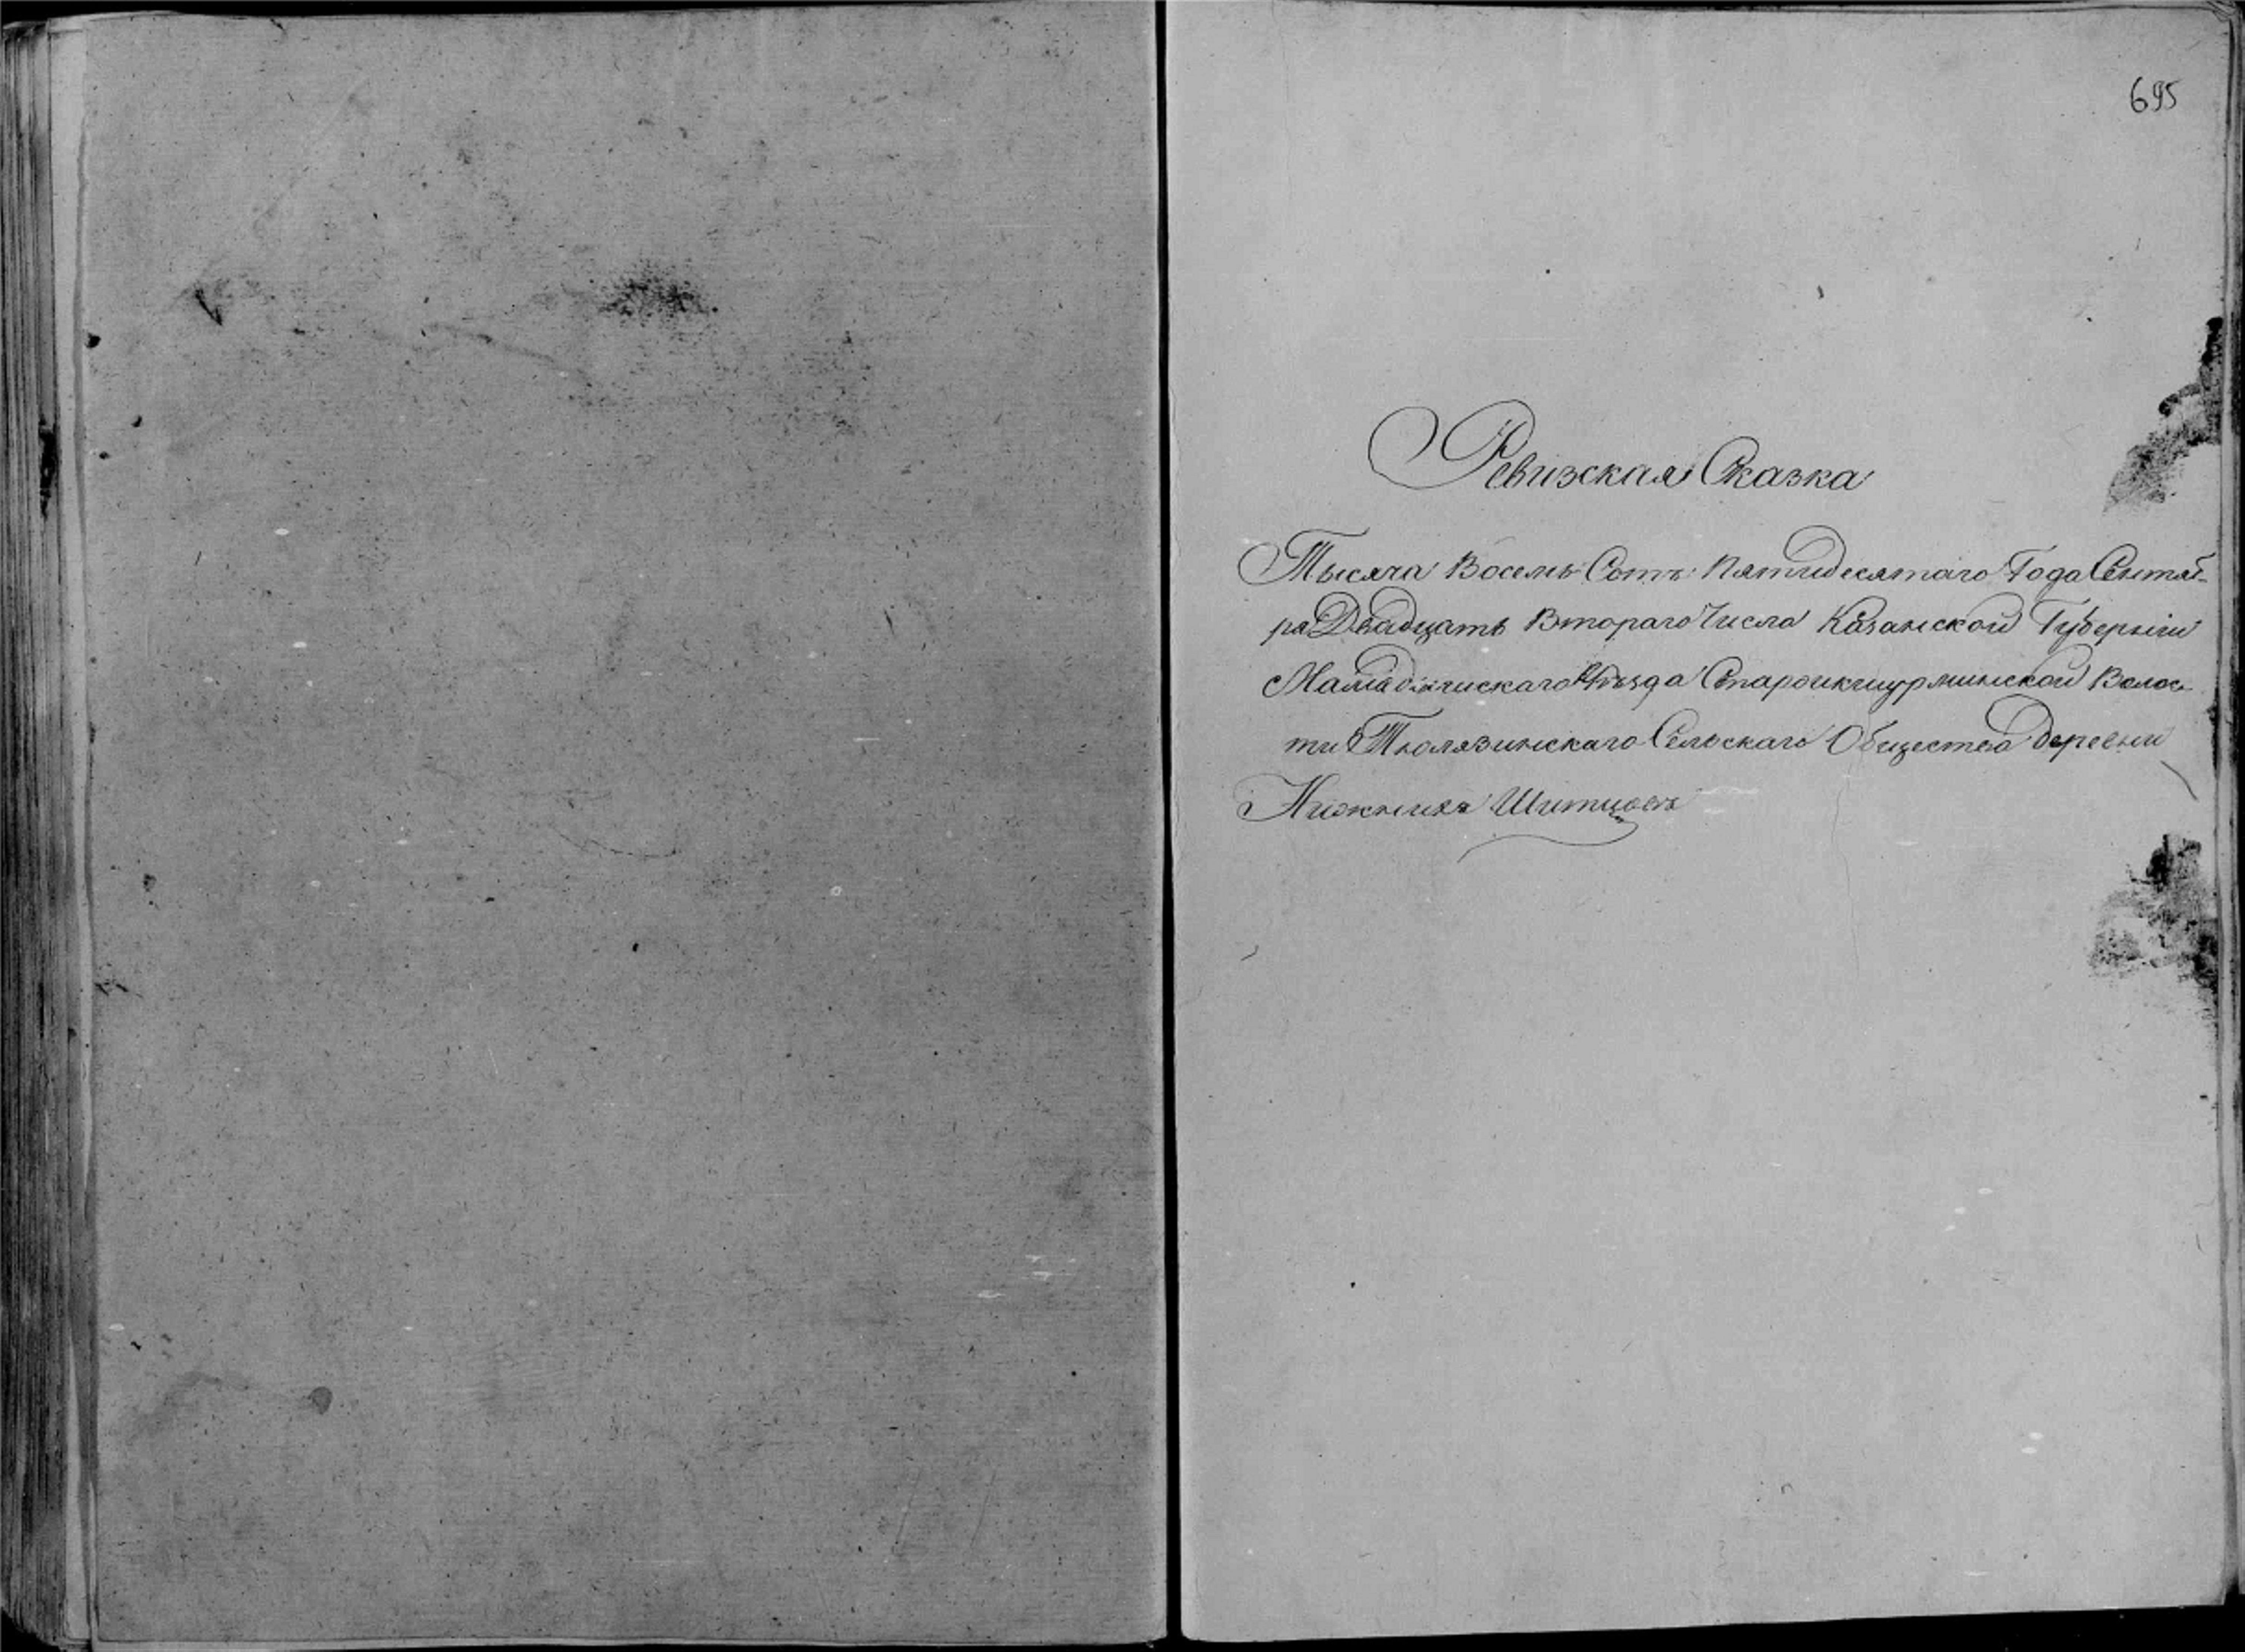 695
Ревизская Сказка
Тысяча Восемь Сотъ Пятидесятаго Года Сентяб-
ря Двадцать Втораго Числа Казанской Губерніи
Мамадышскаго Уѣзда Староикшурминской Волос-
ти Тюлязинскаго Сельскаго Общества Деревни
Нижнихъ Шитцовъ